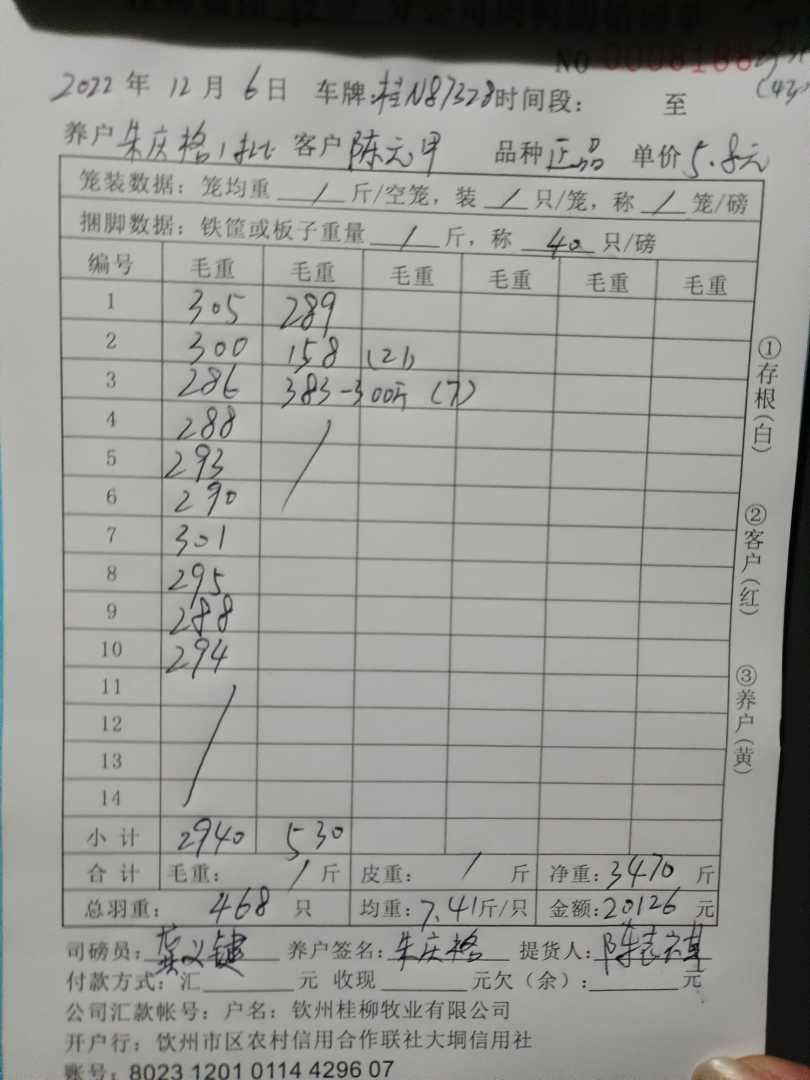 NO 0008188
2022 年 12 月 6 日 车牌:桂N87328 时间段: 至
养户 朱庆格 客户 陈元甲 品种 正品 单价 5.8元
笼装数据: 笼均重 / 斤/空笼, 装 / 只/笼, 称 / 笼/磅
捆脚数据: 铁筐或板子重量 / 斤, 称 40 只/磅
编号 毛重 毛重 毛重 毛重 毛重 毛重
1 305 289
2 300 158 (21)
3 286 383-300斤 (7)
4 288 /
5 293
6 290
7 301
8 295
9 288
10 294
11 /
12
13
14
小计 2940 530
合计 毛重: / 斤 皮重: / 斤 净重: 3470 斤
总羽重: 468 只 均重: 7.41 斤/只 金额: 20126 元
司磅员: 养户签名: 朱庆格 提货人:
付款方式: 汇 元 收现 元欠(余): 元
公司汇款帐号: 户名: 钦州桂柳牧业有限公司
开户行: 钦州市区农村信用合作联社大垌信用社
账号: 8023 1201 0114 4296 07
①存根(白)
②客户(红)
③养户(黄)